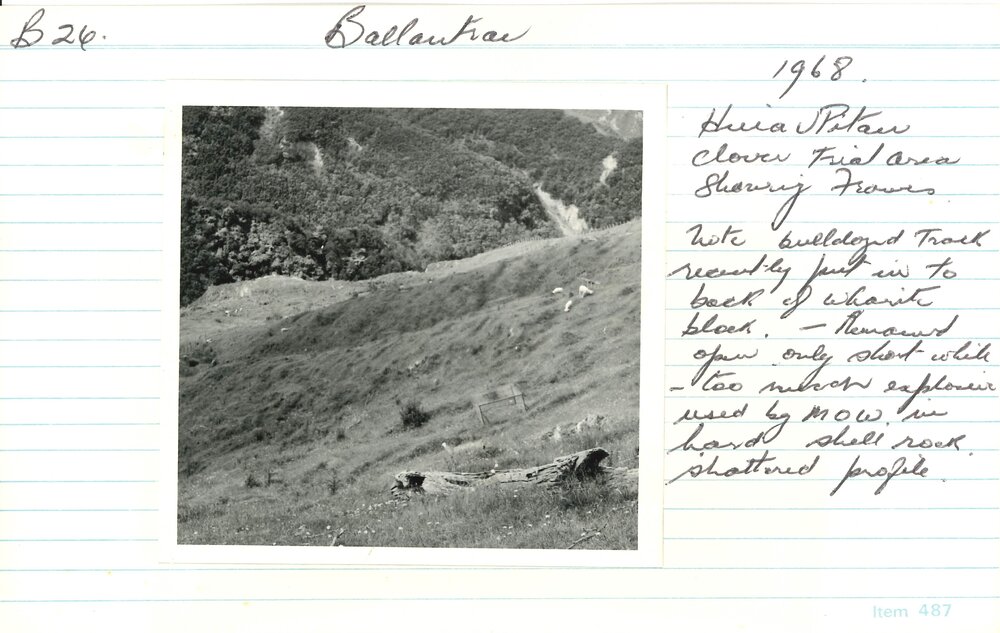 B 26.
Ballantrae
1968.
Huia v Pitau
clover Trial area
Showing Frames
Note bulldozed Track
recently put in to
back of wharite
block. - Remained
open only short while
- too much explosive
used by MOW. in
hard shell rock.
shattered profile.
Item 487